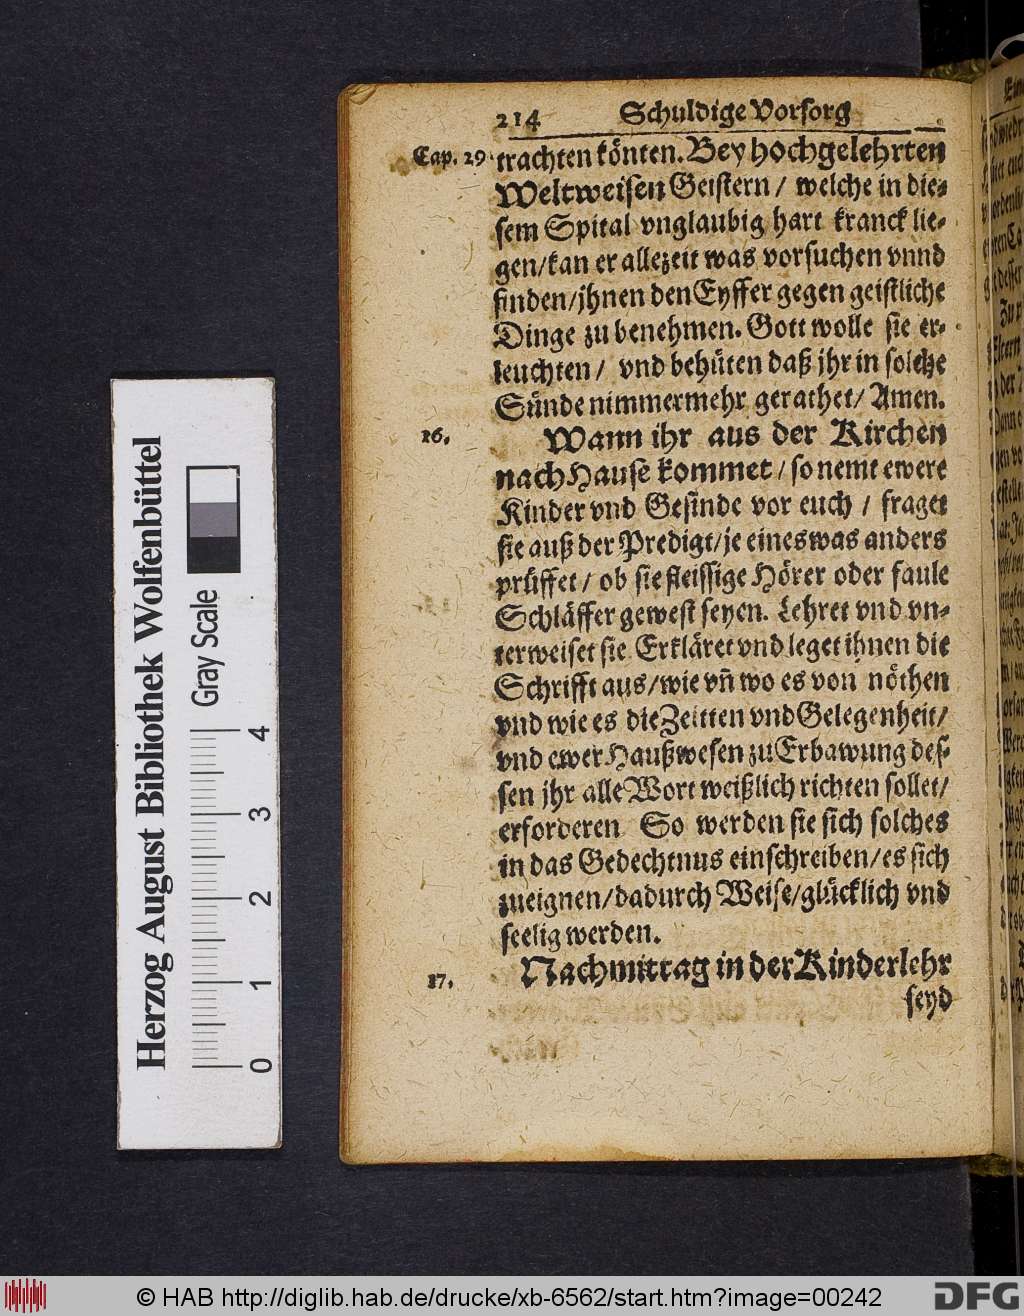 214 Schuldige Vorsorg
Cap. 29. trachten könten. Bey hochgelehrten
Weltweisen Geistern / welche in die-
sem Spital vnglaubig hart kranck lie-
gen / kan er allezeit was vorsuchen vnnd
finden / jhnen den Eyffer gegen geistliche
Dinge zu benehmen. Gott wolle sie er-
leuchten / vnd behüten daß jhr in solche
Sünde nimmermehr gerathet / Amen.
16. Wann ihr aus der Kirchen
nach Hause kommet / so nemt ewere
Kinder vnd Gesinde vor euch / fraget
sie auß der Predigt / je eines was anders
prüffet / ob sie fleissige Hörer oder faule
Schläffer gewest seyen. Lehret vnd vn-
terweiset sie Erkläret vnd leget ihnen die
Schrifft aus / wie vñ wo es von nöthen
vnd wie es die Zeitten vnd Gelegenheit /
vnd ewer Haußwesen zu Erbawung des-
sen jhr alle Wort weißlich richten sollet /
erforderen So werden sie sich solches
in das Gedechtnus einschreiben / es sich
zueignen / dadurch Weise / glücklich vnd
seelig werden.
17. Nachmittag in der Kinderlehr
seyd
Herzog August Bibliothek Wolfenbüttel
Gray Scale
0 1 2 3 4
© HAB http://diglib.hab.de/drucke/xb-6562/start.htm?image=00242
DFG